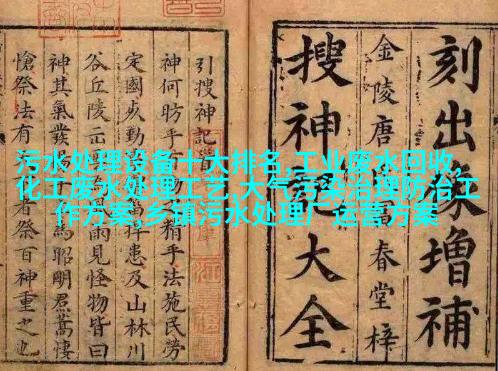 刻出像增補
金陵唐富春堂梓
搜神記大全
引搜神記首
神何昉乎手法施民勞
定國以勤患及山林川
谷丘陵見怪物皆曰
神其氣發昭明焄蒿悽
愴祭法有者祭百神重之也
污水处理设备十大排名,工业废水回收,
化工废水处理工艺,大气污染治理防治工
作方案,乡镇污水处理厂运营方案